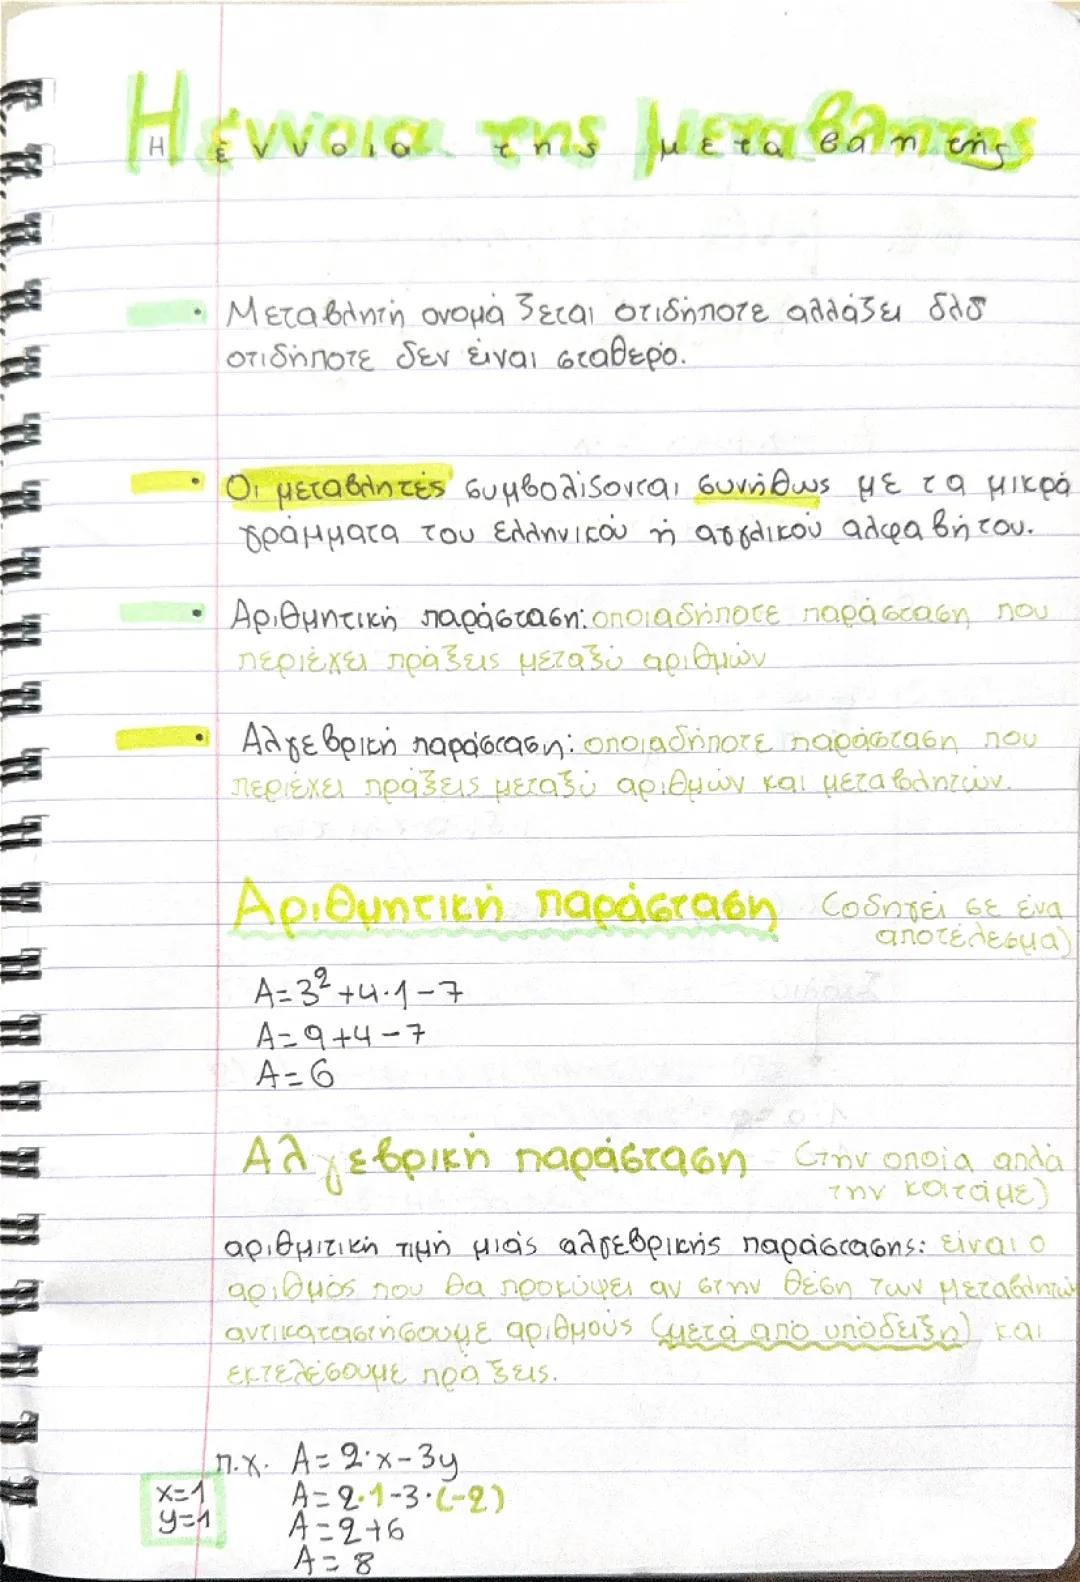 Η έννοια της μεταβλητής
Μεταβλητή ονομάζεται οτιδήποτε αλλάζει δλδ
οτιδήποτε δεν είναι σταθερό.
Οι μεταβλητές συμβολίζονται συνήθως με τα μικρά
γράμματα του ελληνικού ή αγγλικού αλφαβήτου.
Αριθμητική παράσταση: οποιαδήποτε παράσταση που
περιέχει πράξεις μεταξύ αριθμών
Αλγεβρική παράσταση: οποιαδήποτε παράσταση που
περιέχει πράξεις μεταξύ αριθμών και μεταβλητών.
Αριθμητική παράσταση (οδηγεί σε ένα
αποτέλεσμα)
A=3²+4·1-7
A=9+4-7
A=6
Αλγεβρική παράσταση (την οποία απλά
την κοιτάμε)
αριθμιτική τιμή μιάς αλγεβρικής παράστασης: είναι ο
αριθμός που θα προκύψει αν στην θέση των μεταβλητών
αντικαταστήσουμε αριθμούς (μετά από υπόδειξη) και
εκτελέσουμε πράξεις.
π.χ. A=2·x-3y
x=1 A=2·1-3·(-2)
y=1 A=2+6
A=8